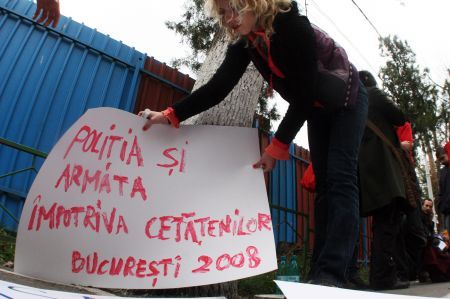 POLIȚIA ȘI
ARMATA
ÎMPOTRIVA CETĂȚENILOR
BUCUREȘTI 2008